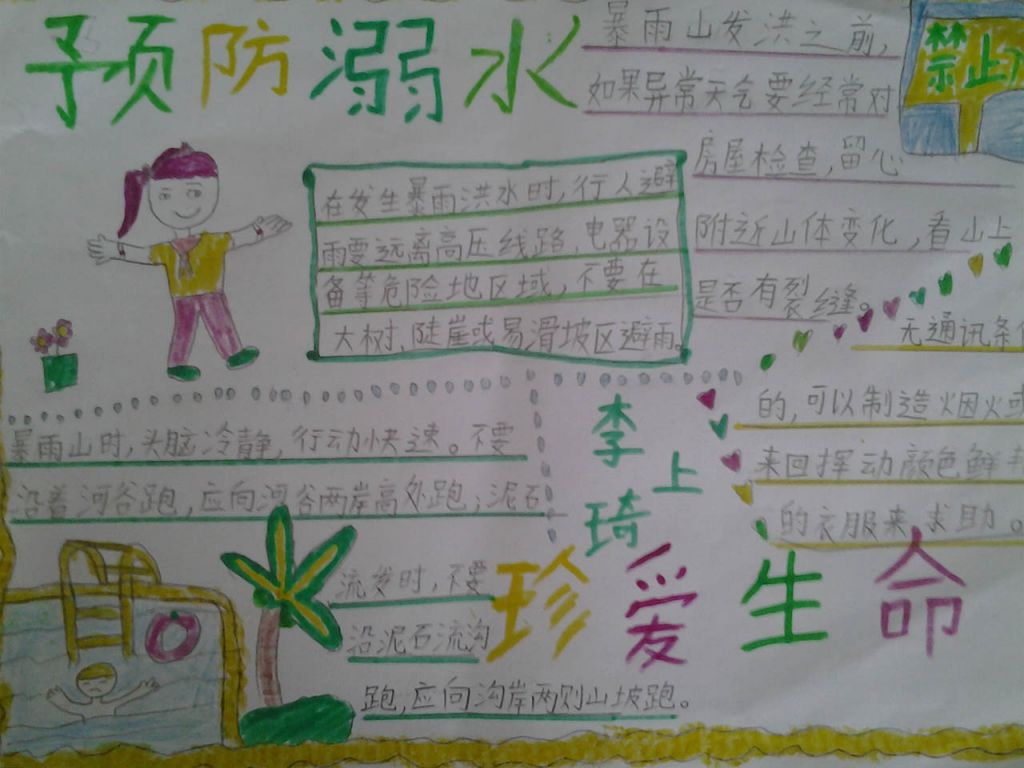 预防溺水
暴雨山发洪之前,
如果异常天气要经常对
房屋检查,留心
附近山体变化,看山上
是否有裂缝。
禁止
在发生暴雨洪水时,行人避
雨要远离高压线路、电器设
备等危险地区域,不要在
大树、陡崖或易滑坡区避雨。
无通讯条
的,可以制造烟火或
来回挥动颜色鲜
的衣服来求助。
暴雨山时,头脑冷静,行动快速。不要
沿着河谷跑,应向河谷两岸高处跑;泥石
流发时,不要
沿泥石流沟
跑,应向沟岸两则山坡跑。
李上
琦
珍爱生命